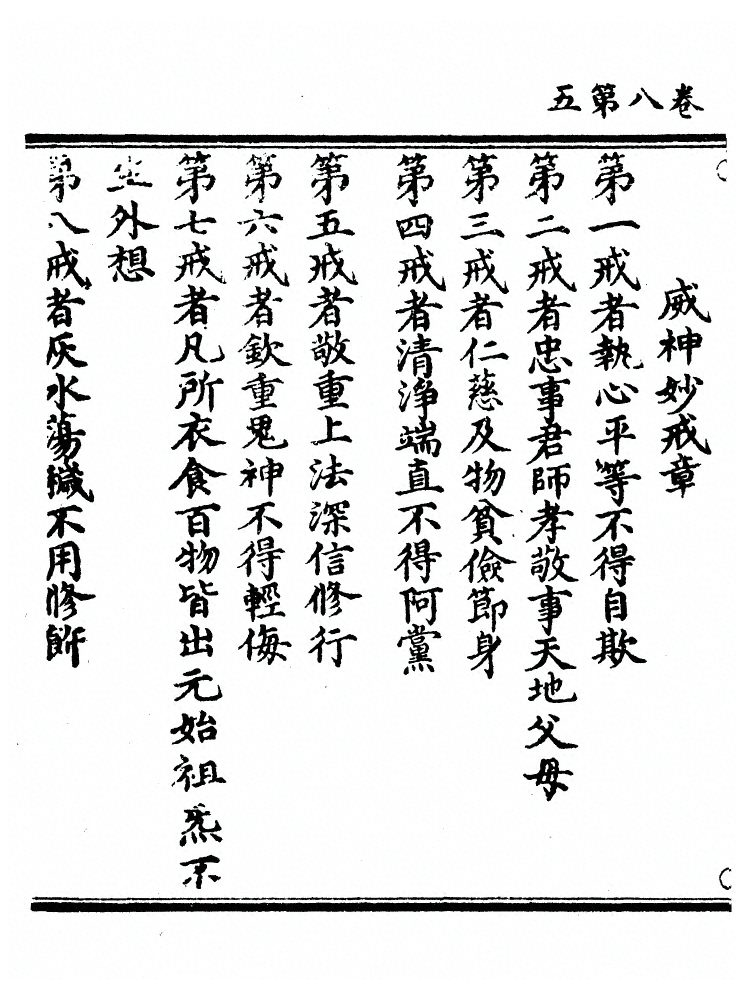 卷八第五
威神妙戒章
第一戒者執心平等不得自欺
第二戒者忠事君師孝敬事天地父母
第三戒者仁慈及物貧儉節身
第四戒者清淨端直不得阿黨
第五戒者敬重上法深信修行
第六戒者欽重鬼神不得輕侮
第七戒者凡所衣食百物皆出元始祖炁不
生外想
第八戒者灰水蕩穢不用修飾